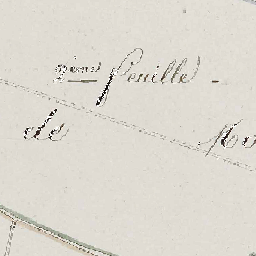 2eme feuille -
de